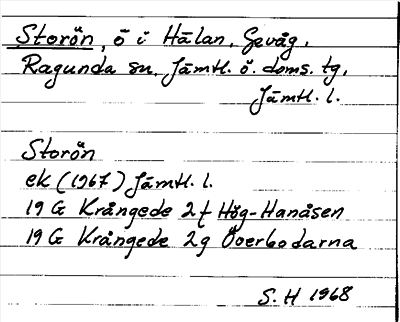 Storön, ö i Hälan, Gevåg,
Ragunda sn, Jämtl. ö. doms. tg,
Jämtl. l.
Storön
ek (1967) Jämtl. l.
19 G Krångede 2f Hög-Hanåsen
19 G Krångede 2g Överbodarna
S. H 1968